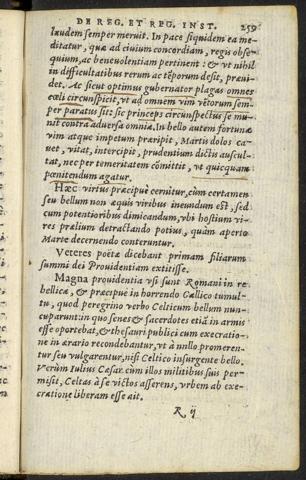 DE REG. ET REG. INST. 259
laudem semper meruit. In pace siquidem ea me-
ditatur, quæ ad ciuium concordiam, regis obse-
quium, ac beneuolentiam pertinent: & vt nihil
in difficultatibus rerum ac tēporum desit, præui-
det. Ac sicut optimus gubernator plagas omnes
cœli circunspicit, vt ad omnem vim vētorum sem-
per paratus sit: sic princeps circunspectus se mu-
nit contra aduersa omnia. In bello autem fortunæ
vim atque impetum præripit, Martis dolos ca-
uet, vitat, intercipit, prudentium dictis auscul-
tat, nec per temeritatem cōmittit, vt quicquam
pœnitendum agatur.
Hæc virtus præcipuè cernitur, cùm certamen
seu bellum non æquis viribus ineundum est, sed
cum potentioribus dimicandum, vbi hostium vi-
res prælium detractando potius, quàm aperto
Marte decernendo conteruntur.
Veteres poetæ dicebant primam filiarum
summi dei Prouidentiam extitisse.
Magna prouidentia vsi sunt Romani in re
bellica, & præcipuè in horrendo Gallico tumul-
tu, quod peregrino verbo Celticum bellum nun-
cuparunt: in quo senes & sacerdotes etiā in armis
esse oportebat, & thesauri publici cum execratio-
ne in ærario recondebantur, vt à nullo promeren-
tur seu vulgarentur, nisi Celtico insurgente bello.
Verùm Iulius Cæsar cùm illos militibus suis per-
misit, Celtas à se victos asserens, vrbem ab exe-
cratione liberam esse ait.
R ij